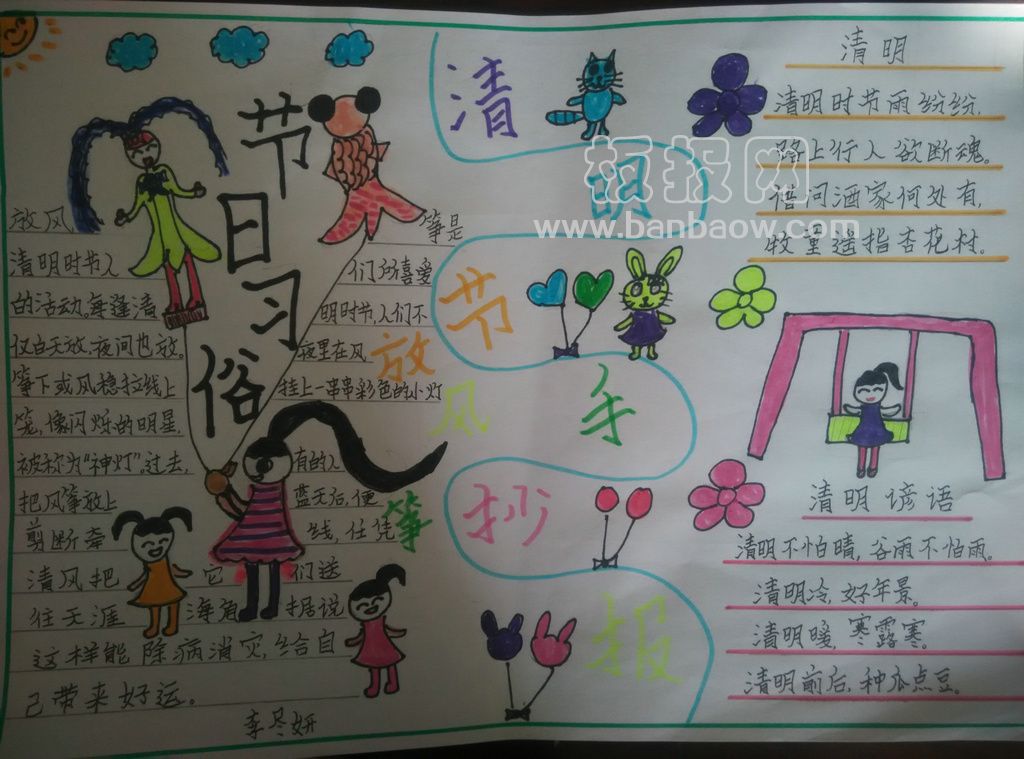 清明节手抄报
节日习俗
放风筝
放风 筝是
清明时节人 们所喜爱
的活动。每逢清 明时节,人们不
仅白天放,夜间也放。 夜里在风
筝下或风稳拉线上 挂上一串串彩色的小灯
笼,像闪烁的明星,
被称为"神灯"。过去, 有的人
把风筝放上 蓝天后,便
剪断牵 线,任凭
清风把 它 们送
往天涯 海角 据说
这样能 除病消灾,给自
己带来好运。
清明
清明时节雨纷纷,
路上行人欲断魂。
借问酒家何处有,
牧童遥指杏花村。
清明谚语
清明不怕晴,谷雨不怕雨。
清明冷,好年景。
清明暖,寒露寒。
清明前后,种瓜点豆。
板报网
www.banbaow.com